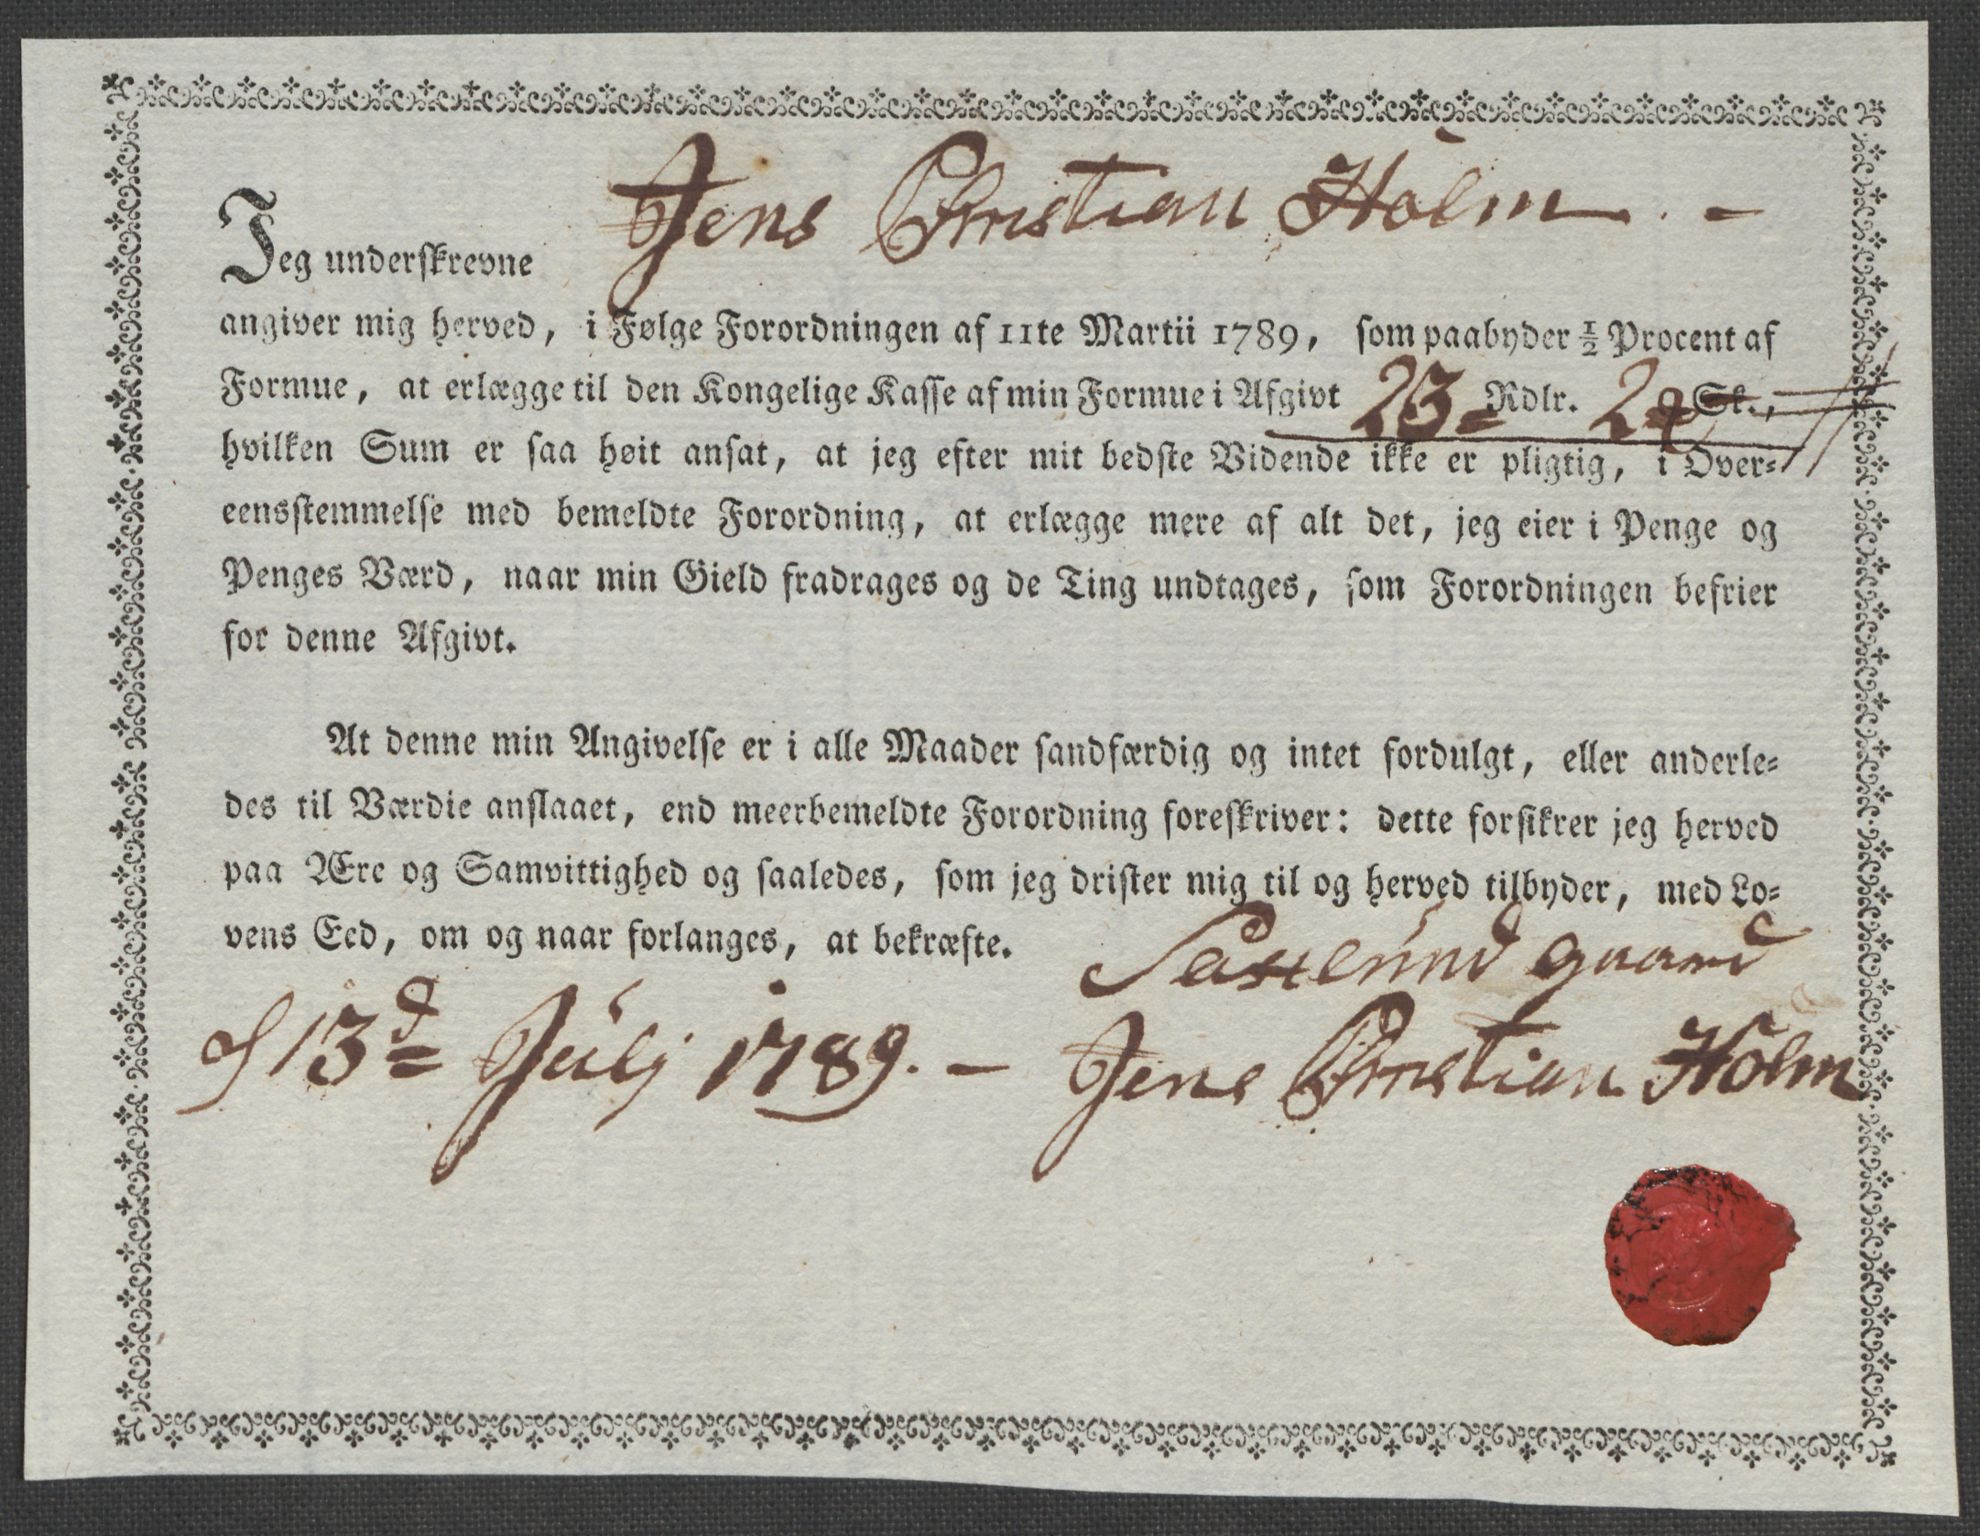 Jens Christian Holm. -
Jeg underskrevne
angiver mig herved, i Følge Forordningen af 11te Martii 1789, som paabyder ½ Procent af
Formue, at erlægge til den Kongelige Kasse af min Formue i Afgivt 23 Rdlr. Sk.,
hvilken Sum er saa høit ansat, at jeg efter mit bedste Vidende ikke er pligtig, i Over-
eensstemmelse med bemeldte Forordning, at erlægge mere af alt det, jeg eier i Penge og
Penges Værd, naar min Gield fradrages og de Ting undtages, som Forordningen befrier
for denne Afgivt.
At denne min Angivelse er i alle Maader sandfærdig og intet fordulgt, eller anderle-
des til Værdie anslaaet, end meerbemeldte Forordning foreskriver: dette forsikrer jeg herved
paa Ære og Samvittighed og saaledes, som jeg drister mig til og herved tilbyder, med Lo-
vens Eed, om og naar forlanges, at bekræfte.
Saxlund gaard
d 13d Julj 1789. - Jens Christian Holm